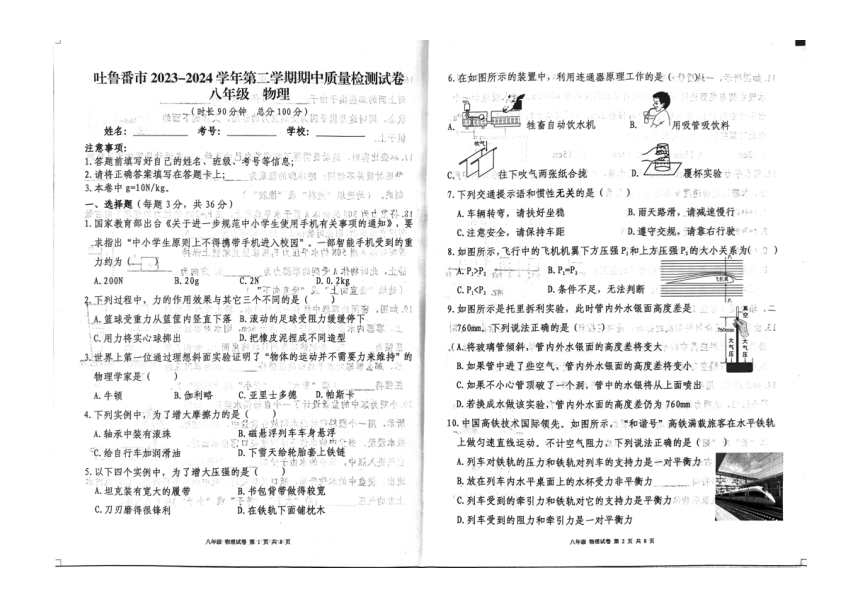 吐鲁番市 2023-2024 学年第二学期期中质量检测试卷
八年级 物理
(时长 90 分钟 总分 100 分)
姓名: 考号: 学校:
注意事项:
1.答题前填写好自己的姓名、班级、考号等信息;
2.请将正确答案填写在答题卡上;
3.本卷中 g=10N/kg。
一、选择题(每题 3 分,共 36 分)
1.国家教育部出台《关于进一步规范中小学生使用手机有关事项的通知》,要
求指出“中小学生原则上不得携带手机进入校园”。一部智能手机受到的重
力约为( )
A.200N B.20g C.2N D.0.2kg
2.下列过程中,力的作用效果与其它三个不同的是( )
A.篮球受重力从篮筐内竖直下落 B.滚动的足球受阻力缓缓停下
C.用力将实心球掷出 D.把橡皮泥捏成不同造型
3.世界上第一位通过理想斜面实验证明了“物体的运动并不需要力来维持”的
物理学家是( )
A.牛顿 B.伽利略 C.亚里士多德 D.帕斯卡
4.下列实例中,为了增大摩擦力的是( )
A.轴承中装有滚珠 B.磁悬浮列车车身悬浮
C.给自行车加润滑油 D.下雪天给轮胎套上铁链
5.以下四个实例中,为了增大压强的是( )
A.坦克装有宽大的履带 B.书包背带做得较宽
C.刀刃磨得很锋利 D.在铁轨下面铺枕木
八年级 物理试卷 第 1 页 共 8 页
6.在如图所示的装置中,利用连通器原理工作的是( )
A. 牲畜自动饮水机 B. 用吸管吸饮料
吹气
C. 往下吹气两张纸合拢 D. 覆杯实验
7.下列交通提示语和惯性无关的是( )
A.车辆转弯,请扶好坐稳 B.雨天路滑,请减速慢行
C.注意安全,请保持车距 D.遵守交规,请靠右行驶
8.如图所示,飞行中的飞机机翼下方压强 P₁和上方压强 P₂的大小关系为( )
A.P₁>P₂ B.P₁=P₂
C.P₁<P₂ D.条件不足,无法判断
飞机翼
9.如图所示是托里拆利实验,此时管内外水银面高度差是
760mm,下列说法正确的是( )
A.将玻璃管倾斜,管内外水银面的高度差将变大
B.如果管中进了些空气,管内外水银面的高度差将变小
C.如果不小心管顶破了一个洞,管中的水银将从上面喷出
D.若换成水做该实验,管内外水面的高度差仍为 760mm
真空
760mm
大气压
大气压
10.中国高铁技术国际领先。如图所示,“和谐号”高铁满载旅客在水平铁轨
上做匀速直线运动。不计空气阻力,下列说法正确的是( )
A.列车对铁轨的压力和铁轨对列车的支持力是一对平衡力
B.放在列车内水平桌面上的水杯受力非平衡力
C.列车受到的牵引力和铁轨对它的支持力是平衡力
D.列车受到的阻力和牵引力是一对平衡力
八年级 物理试卷 第 2 页 共 8 页